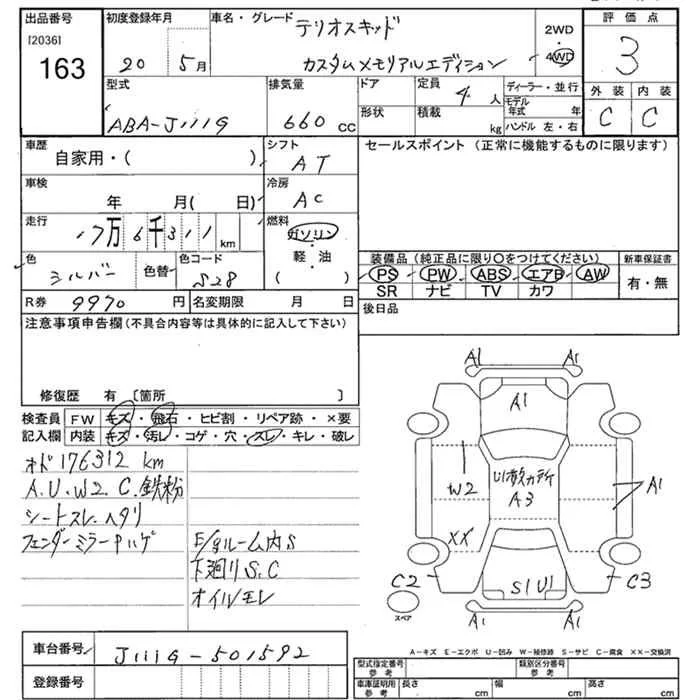 出品番号
[2036]
163
初度登録年月
20 5月
車名・グレード
テリオスキッド
カスタムメモリアルエディション
2WD
4WD
評価点
3
外装 内装
C C
型式
ABA-J111G
排気量
660 CC
ドア
形状
定員
4 人
積載
kg
ディーラー・並行
モデル年式 年
ハンドル 左・右
車歴
自家用・( )
シフト
AT
車検
年 月( 日)
冷房
AC
走行
17万6千311 km
燃料
ガソリン
・
軽油
( )
色
シルバー
色替
色コード
S28
R券 9970 円
名変期限 月 日
セールスポイント (正常に機能するものに限ります)
装備品 (純正品に限り○をつけてください)
PS PW ABS エアB AW
SR ナビ TV カワ
新車保証書
有・無
後日品
注意事項申告欄 (不具合内容等は具体的に記入して下さい)
修復歴 有 〔箇所 〕
検査員
記入欄
FW キズ・飛石・ヒビ割・リペア跡・×要
内装 キズ・汚レ・コゲ・穴・スレ・キレ・破レ
オド176312 km
A.U.W2.C.鉄粉
シートスレ.ヘタリ
フェンダーミラー中ハゲ
E/gルーム内S
下廻りS.C
オイルモレ
A1 A1
A1
U1数カ所
A3
W2
XX
A1
C2
C3
S1 U1
スペア
A1 A1
A-キズ E-エクボ U-凹み W-補修跡 S-サビ C-腐食 ××-交換済
車台番号 J111G-501592
登録番号
型式指定番号
参考
類別区分番号
参考
車庫証明用
参考
長さ cm
幅 cm
高さ cm